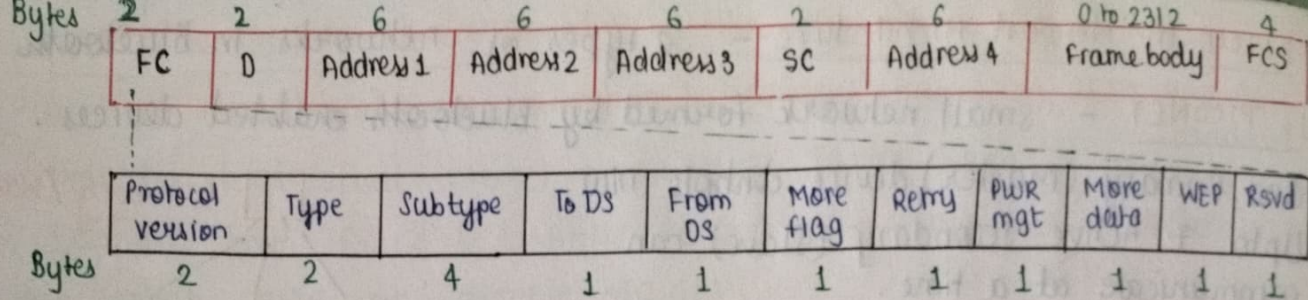 Bytes 2 2 6 6 6 2 6 0 to 2312 4
FC D Address 1 Address 2 Address 3 SC Address 4 Frame body FCS
Protocol version Type Subtype To DS From DS More flag Retry PWR mgt More data WEP Rsvd
Bytes 2 2 4 1 1 1 1 1 1 1 1